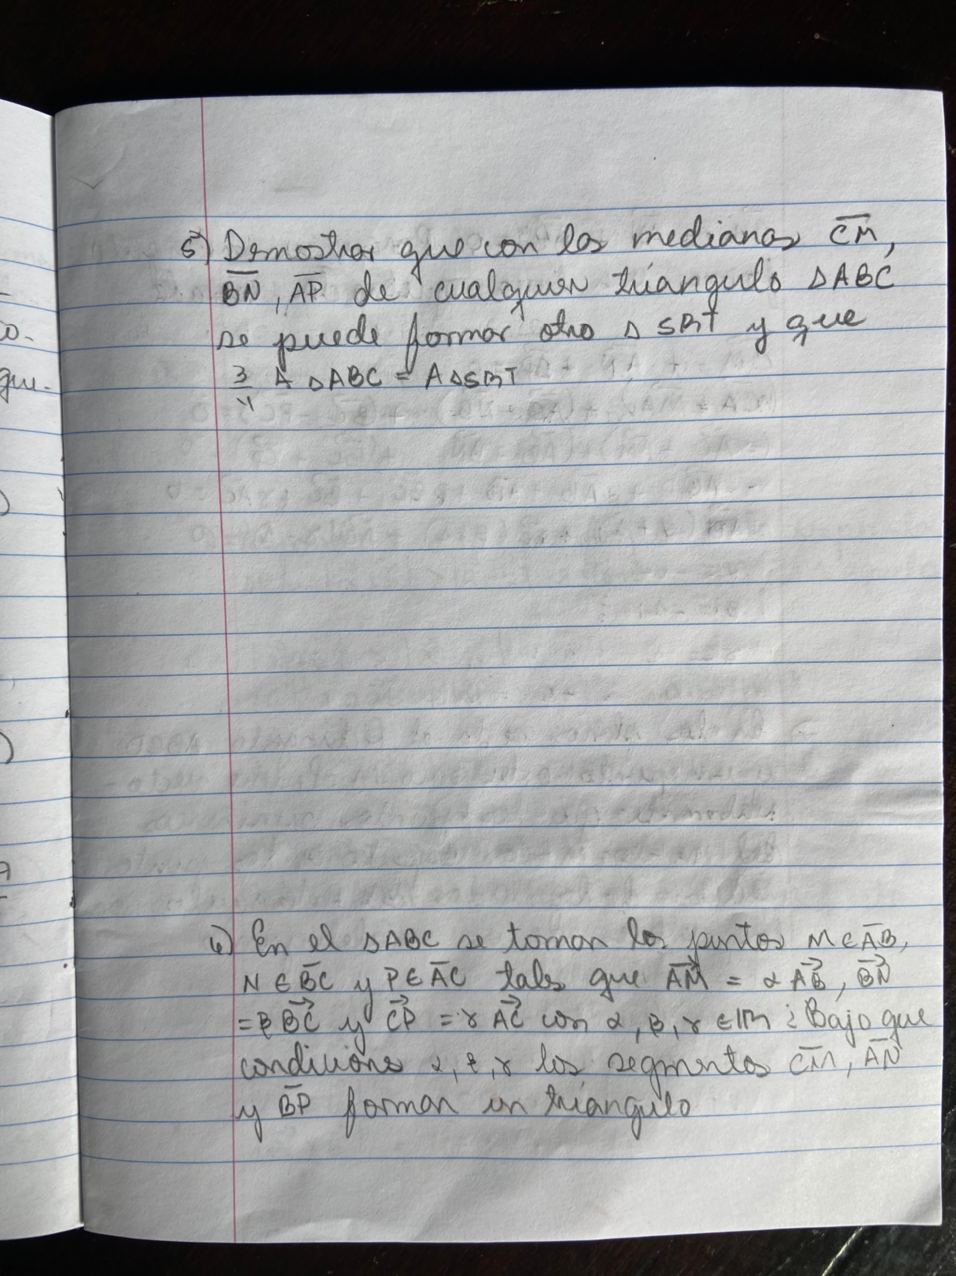 5) Demostrar que con las medianas CM,
BN, AP de cualquier triangulo ΔABC
se puede formar otro Δ SBT y que
3/4 A ΔABC = AΔSBT
6) En el ΔABC se toman los puntos M∈AB,
N∈BC y P∈AC tales que AM = αAB, BN
=βBC y CP = γAC con α, β, γ ∈ IR ¿Bajo que
condicions α, β, γ los segmentos CM, AN
y BP forman un triangulo